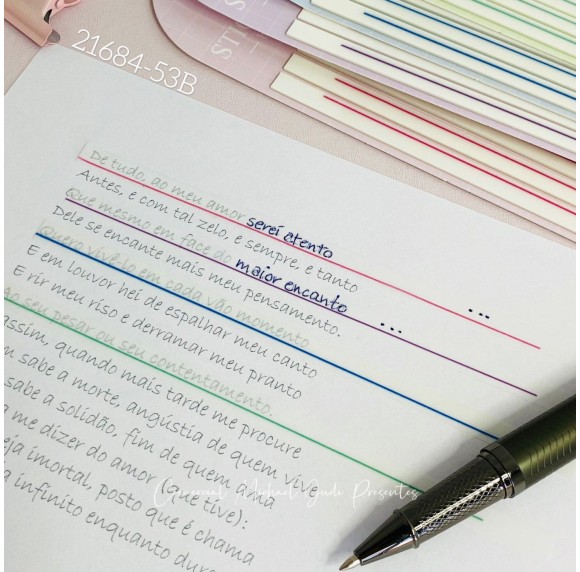 21684-53B
De tudo, ao meu amor serei atento
Antes, e com tal zelo, e sempre, e tanto
Que mesmo em face do maior encanto ...
Dele se encante mais meu pensamento. ...
Quero vivê-lo em cada vão momento
E em louvor hei de espalhar meu canto
E rir meu riso e derramar meu pranto
Ao seu pesar ou seu contentamento.
assim, quando mais tarde me procure
m sabe a morte, angústia de quem vive
sabe a solidão, fim de quem ama
a me dizer do amor (que tive):
eja imortal, posto que é chama
a infinito enquanto dur
Presentes